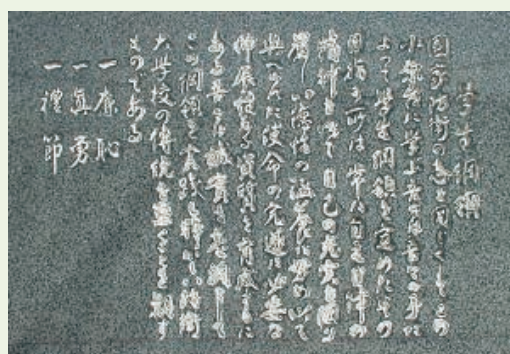 学生綱領
国家防衛の志を同じくしてこの
小原台に学ぶ吾等は吾等の手に
よって学生綱領を定めたその
目指す所は常に自主自律の
精神を以て自己の充実を図り
厳しい徳性の涵養に努め以て
與へられた使命の完遂に必要な
伸展性ある資質を育成するに
ある吾等は誠實を基調として
この綱領を実践し輝かしい防衛
大学校の傳統を築くことを期す
ものである
一 廉恥
一 真勇
一 禮節